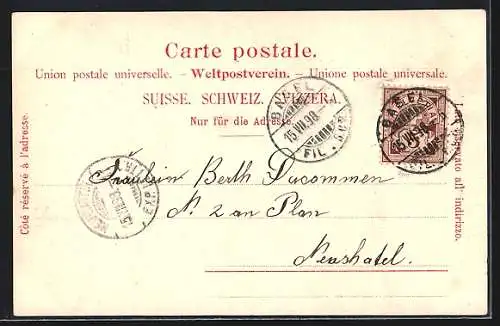 Carte postale.
Union postale universelle. – Weltpostverein. – Unione postale universale.
SUISSE. SCHWEIZ. SVIZZERA.
Nur für die Adresse.
Côté réservé à l'adresse.
all' indirizzo.
BASEL
15.VII.98.
FIL.
BASEL
15.VII.98.
Fräulein Berth Ducommen
N. 2 an Plan
Neushatel.